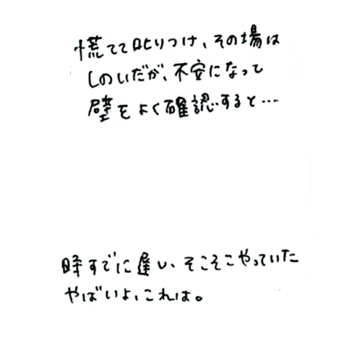 慌てて叱りつけ、その場は
しのいだが、不安になって
壁をよく確認すると…
時すでに遅い、そこそこやっていた
やばいよ、これは。